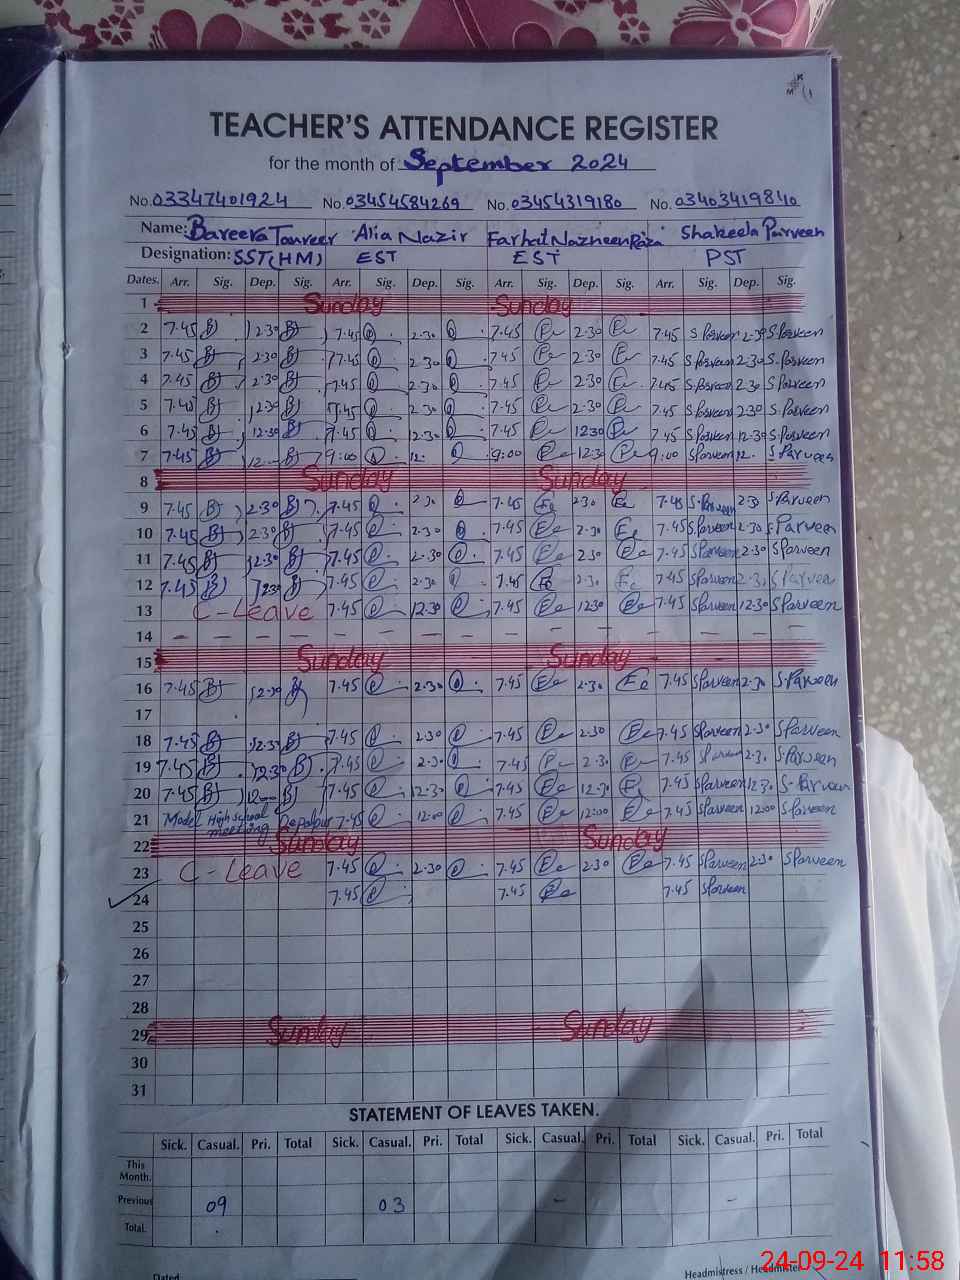 TEACHER'S ATTENDANCE REGISTER
for the month of September 2024
No. 03347401924 No. 03454584269 No. 03454319180 No. 03403419840
Name: Bareera Tanveer Alia Nazir Farhat Nazneen Raza Shakeela Parveen
Designation: SST(HM) EST EST PST
Dates. Arr. Sig. Dep. Sig. Arr. Sig. Dep. Sig. Arr. Sig. Dep. Sig. Arr. Sig. Dep. Sig.
1 Sunday Sunday
2 7.45 2.30 7.45 2.30 7.45 2.30 7.45 S Parveen 2.30 S Parveen
3 7.45 2.30 7.45 2.30 7.45 2.30 7.45 S Parveen 2.30 S Parveen
4 7.45 2.30 7.45 2.30 7.45 2.30 7.45 S Parveen 2.30 S Parveen
5 7.45 2.30 7.45 2.30 7.45 2.30 7.45 S Parveen 2.30 S Parveen
6 7.45 12.30 7.45 12.30 7.45 1230 7.45 S Parveen 12.30 S Parveen
7 7.45 12. 9:00 12. 9:00 12.30 9:00 S Parveen 12. S Parveen
8 Sunday Sunday
9 7.45 2.30 7.45 2.30 7.45 2.30 7.45 S. Parveen 2.30 S Parveen
10 7.45 2.30 7.45 2.30 7.45 2.30 7.45 S Parveen 2.30 S Parveen
11 7.45 2.30 7.45 2.30 7.45 2.30 7.45 S Parveen 2.30 S Parveen
12 7.45 2.30 7.45 2.30 7.45 2.30 7.45 S Parveen 2.3 S Parveen
13 C-Leave 7.45 12.30 7.45 1230 7.45 S Parveen 12.30 S Parveen
14 - - - - - - - - - - - - - - -
15 Sunday Sunday
16 7.45 2.30 7.45 2.30 7.45 2.30 7.45 S Parveen 2.30 S. Parveen
17
18 7.45 2.30 7.45 2.30 7.45 2.30 7.45 S Parveen 2.30 S Parveen
19 7.45 2.30 7.45 2.30 7.45 2.30 7.45 S Parveen 2.3. S. Parveen
20 7.45 12 7.45 12.30 7.45 12.30 7.45 S Parveen 12.3. S. Parveen
21 Model High school meeting Depalpur 7.45 12:00 7.45 12:00 7.45 S Parveen 12:00 S. Parveen
22 Sunday Sunday
23 C-Leave 7.45 2.30 7.45 2.30 7.45 S Parveen 2.30 S Parveen
24 7.45 7.45 7.45 S Parveen
25
26
27
28
29 Sunday Sunday
30
31
STATEMENT OF LEAVES TAKEN.
Sick. Casual. Pri. Total Sick. Casual. Pri. Total Sick. Casual. Pri. Total Sick. Casual. Pri. Total
This Month.
Previous 09 03 - -
Total.
Dated
Headmistress / Headmister
24-09-24 11:58